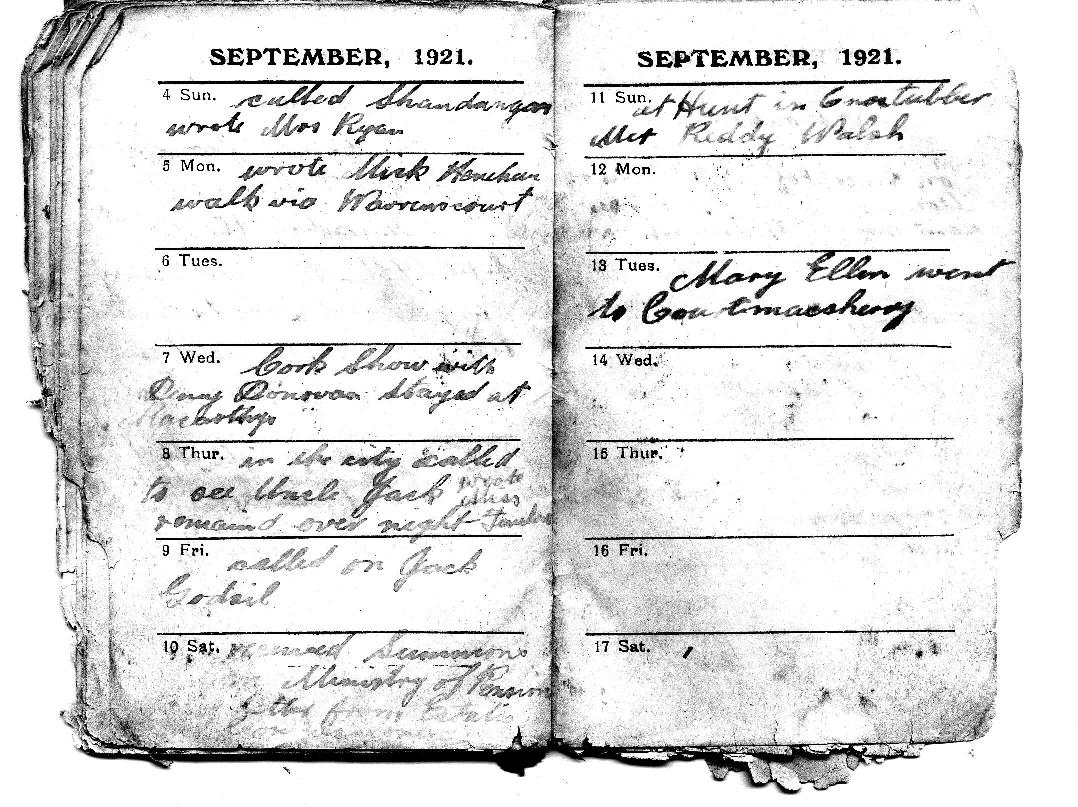 SEPTEMBER, 1921.
4 Sun. called Shandangan
wrote Mrs Ryan
5 Mon. wrote Mick Henehan
walk via Warrenscourt
6 Tues.
7 Wed. Cork Show with
Denny Donovan stayed at
Macarthys
8 Thur. in the city called
to see Uncle Jack wrote
Miss
remaind over night
9 Fri. called on Jack
Godsil
10 Sat. received Summons
Ministry of Pension
from Estate
SEPTEMBER, 1921.
11 Sun. at Hunt in
Met Reddy Walsh
12 Mon.
13 Tues. Mary Ellen went
to Courtmacsherry
14 Wed.
15 Thur.
16 Fri.
17 Sat.